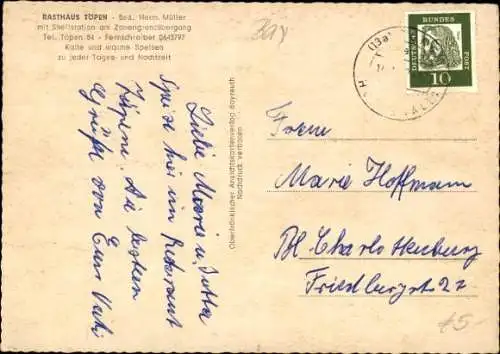 RASTHAUS TÖPEN - Bes. Herm. Müller
mit Shellstation am Zonengrenzübergang
Tel. Töpen 84 - Fernschreiber 0643797
Kalte und warme Speisen
zu jeder Tages- und Nachtzeit
Bay
(13a)
DEUTSCHE
BUNDES
POST
10
Liebe Maria u. Jutta
hier im
Töpen. Die besten
Grüße von Euer Vati
Oberfränkischer Ansichtskartenverlag Bayreuth
Nachdruck verboten
Marie Hoffmann
Bl. Charlottenburg
Friedbergst 22
45-